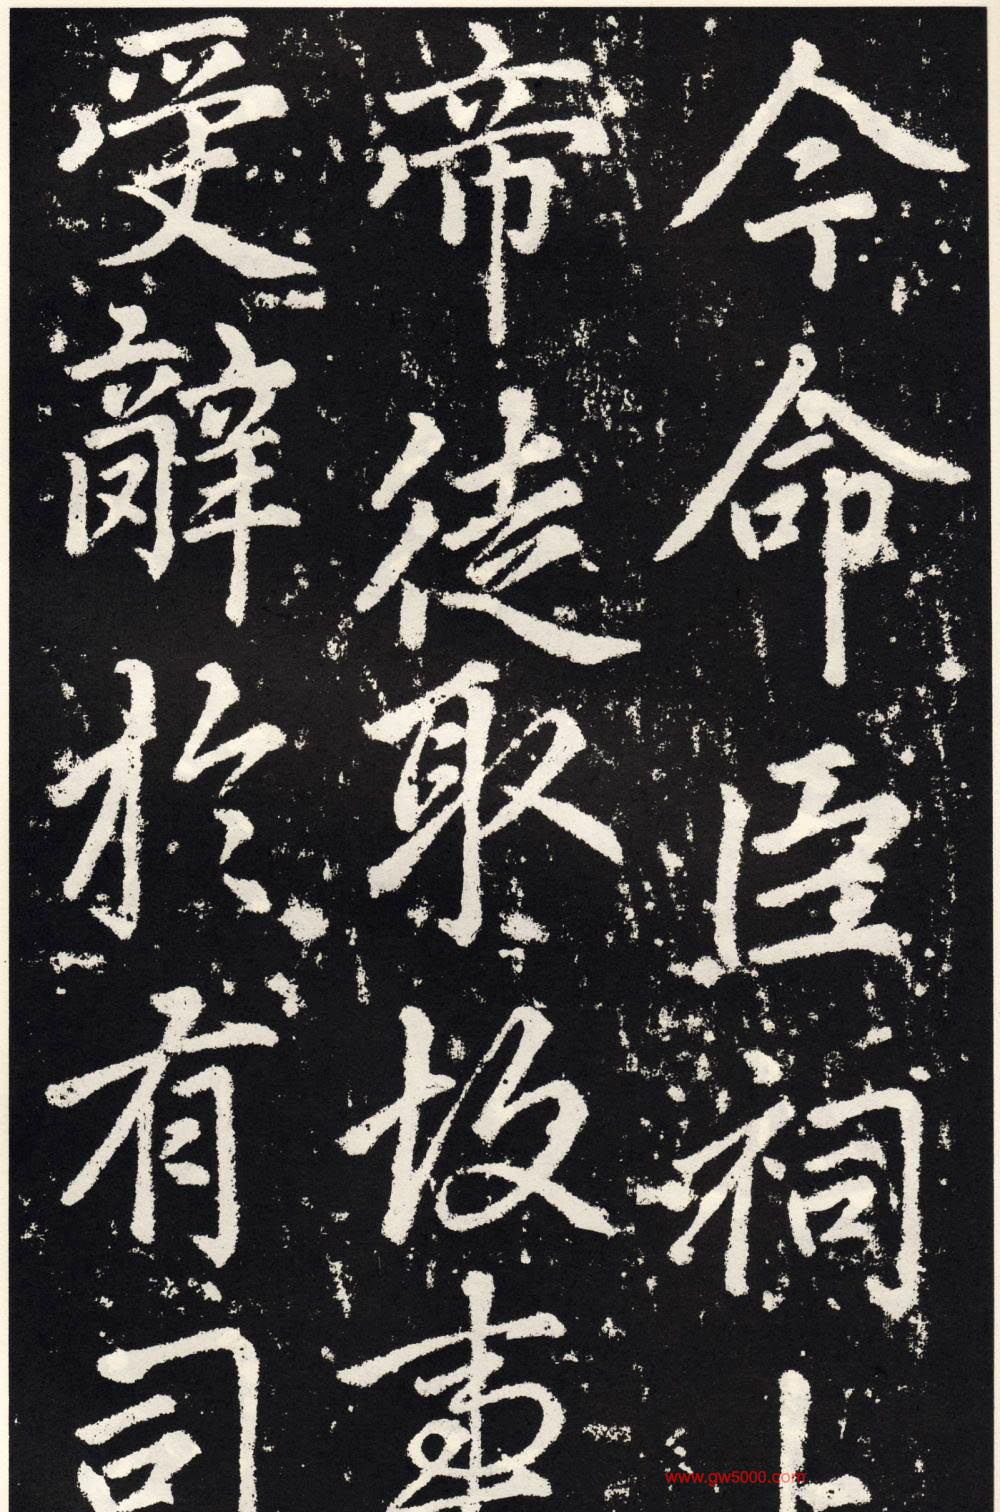 今命臣祠上
帝徒取故事
受辞於有司
www.gw5000.com